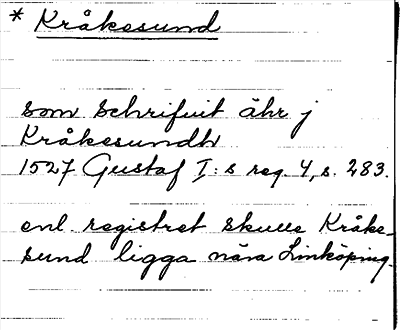 * Kråkesund
som schrifuit åhr j
Kråkesundh
1527 Gustaf I:s reg. 4, s. 283.
enl. registret skulle Kråke-
sund ligga nära Linköping.